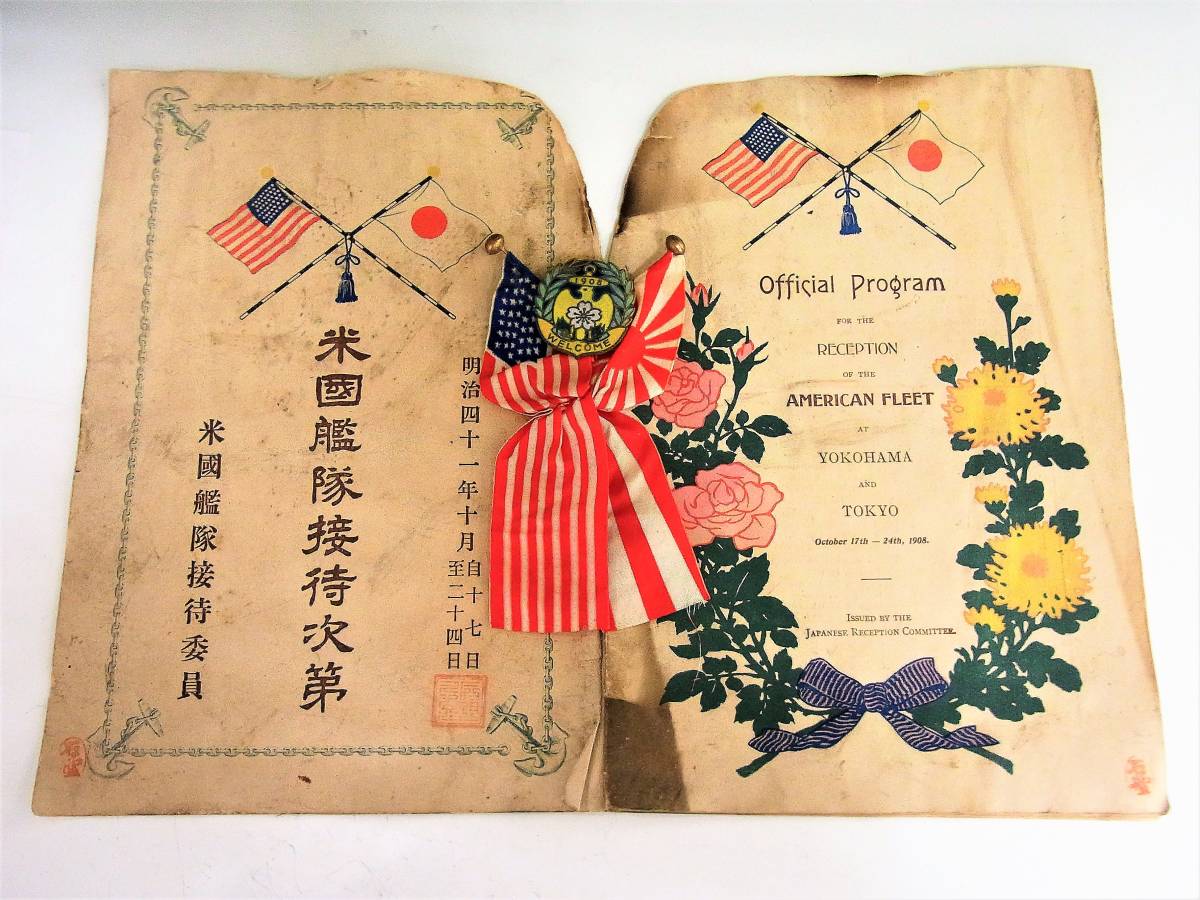 明治四十一年十月自十七日至二十四日
米國艦隊接待次第
米國艦隊接待委員
1908
WELCOME
Official Program
FOR THE
RECEPTION
OF THE
AMERICAN FLEET
AT
YOKOHAMA
AND
TOKYO
October 17th — 24th, 1908.
ISSUED BY THE
JAPANESE RECEPTION COMMITTEE.